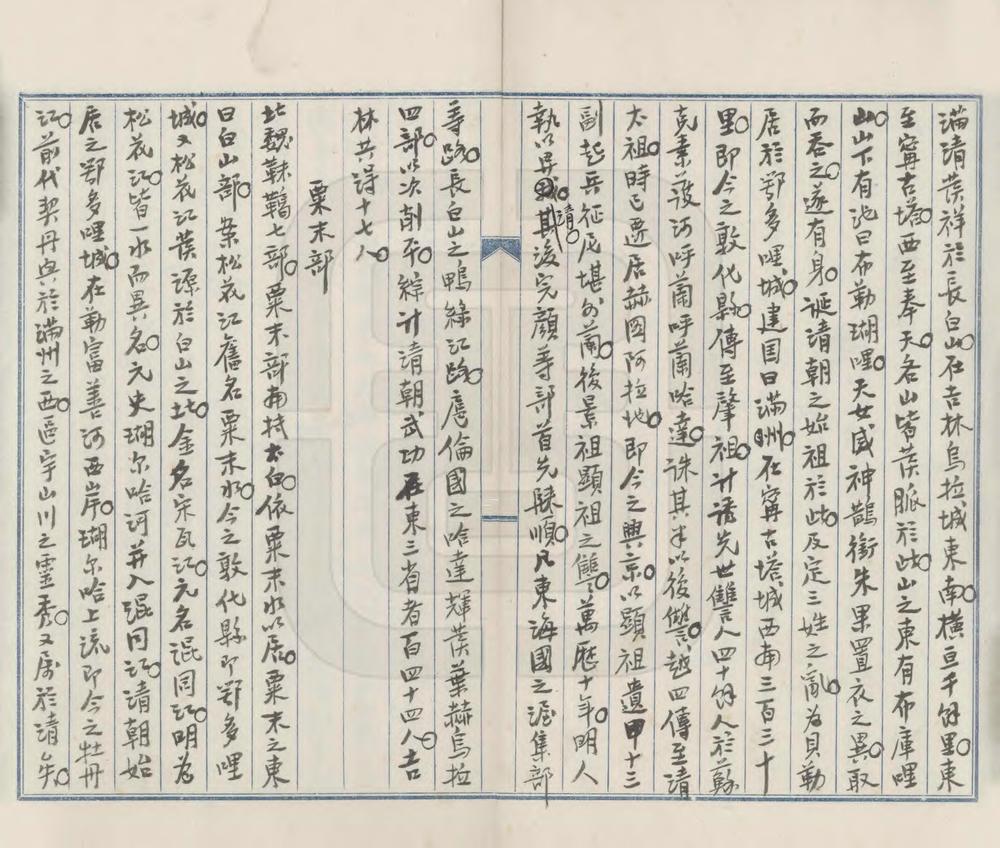 滿清發祥於長白山。在吉林烏拉城東南。橫亘千餘里。東
至寧古塔。西至奉天。各山皆發脈於此。山之東有布庫哩
山。山下有池曰布勒瑚哩。天女感神鵲銜朱果置衣之異。取
而吞之。遂有身。誕清朝之始祖於此。及定三姓之亂。為貝勒
居於鄂多哩城。建国曰滿洲。在寧古塔城西南三百三十
里。即今之敦化縣。傳至肇祖。計誘先世讐人四十餘人於蘇
克素護河呼蘭呼蘭哈達。誅其半以復讐。越四傳至清
太祖。時已遷居赫圖阿拉地。即今之興京。以顯祖遺甲十三
副起兵征尼堪外蘭。復景祖顯祖之讐。萬曆十年。明人
執以畀清。其後完顏等部首先歸順。凡東海國之渥集部
等路。長白山之鴨綠江路。扈倫國之哈達輝發葉赫烏拉
四部。以次削平。綜計清朝武功在東三省者百四十四人。吉
林共得十七人。
粟末部
北魏靺鞨七部。粟末部南抵太白。依粟末水以居。粟末之東
曰白山部。案松花江舊名粟末水。今之敦化縣即鄂多哩
城。又松花江發源於白山之北。金名宋瓦江。元名混同江。明為
松花江。皆一水而異名。元史瑚尔哈河并入混同江。清朝始
居之鄂多哩城。在勒富善河西岸。瑚尔哈上流即今之牡丹
江。前代契丹興於滿州之西區宇山川之靈秀。又属於清矣。